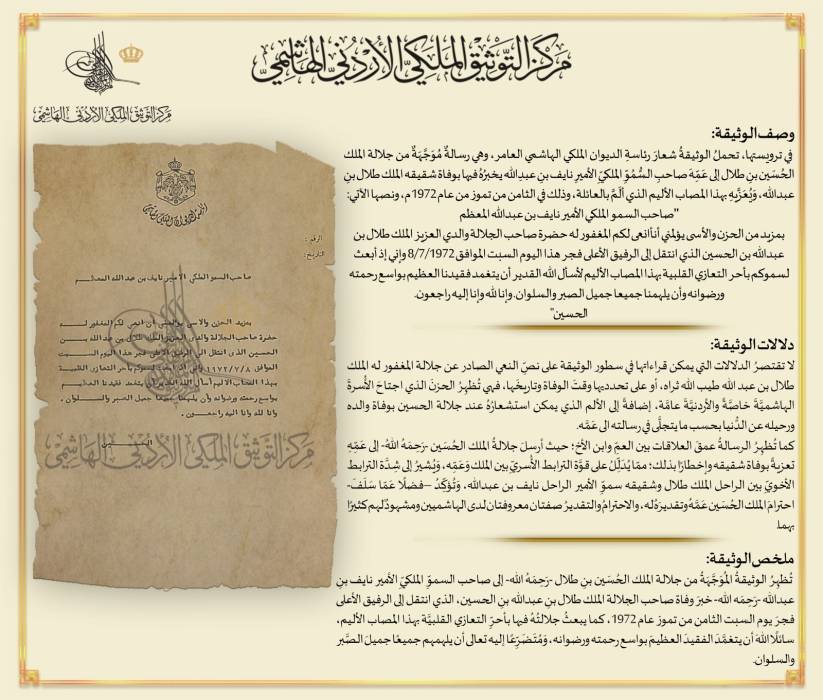 مركز التوثيق الملكي الأردني الهاشمي
مركز التوثيق الملكي الأردني الهاشمي
وصف الوثيقة:
في ترويستها، تحملُ الوثيقةُ شعارَ رئاسةِ الديوان الملكي الهاشمي العامر، وهي رسالةٌ مُوَجَّهَةٌ من جلالة الملك
الحُسَين بن طلال إلى عَمِّهَ صاحبِ السُّمُوّ الملكيّ الأميرِ نايف بن عبدالله يخبرُهُ فيها بوفاة شقيقه الملك طلال بن
عبدالله، وَيُعَزِّيهِ بهذا المصاب الأليم الذي أَلَمَّ بالعائلة، وذلك في الثامن من تموز من عام 1972م، ونصها الآتي:
"صاحب السمو الملكي الأمير نايف بن عبدالله المعظم
بمزيد من الحزن والأسى يؤلمني أن أنعى لكم المغفور له حضرة صاحب الجلالة والدي العزيز الملك طلال بن
عبدالله بن الحسين الذي انتقل إلى الرفيق الأعلى فجر هذا اليوم السبت الموافق 8/7/1972 وإني إذ أبعث
لسموكم بأحر التعازي القلبية بهذا المصاب الأليم لأسأل الله القدير أن يتغمد فقيدنا العظيم بواسع رحمته
ورضوانه وأن يلهمنا جميعا جميل الصبر والسلوان. وإنا لله وإنا إليه راجعون.
الحسين"
دلالات الوثيقة:
لا تقتصرُ الدلالات التي يمكن قراءاتها في سطور الوثيقة على نصّ النعي الصادر عن جلالة المغفور له الملك
طلال بن عبد الله طيب الله ثراه، أو على تحديدها وقتَ الوفاة وتاريخَها، فهي تُظهِرُ الحزنَ الذي اجتاحَ الأُسرةَ
الهاشميَّةَ خاصَّةً والأردنيَّةَ عامَّة، إضافةً إلى الألم الذي يمكن استشعارُهُ عند جلالة الحسين بوفاة والده
ورحيله عن الدُّنيا بحسب ما يتجلَّى في رسالته الى عَمِّه.
كما تُظهِرُ الرسالةُ عمقَ العلاقات بين العمّ وابن الأخ؛ حيث أرسلَ جلالةُ الملك الحُسَين -رَحِمَهُ اللهُ- إلى عَمِّهِ
تعزيةً بوفاة شقيقه وإخطارًا بذلك؛ ممّا يُدَلِّلُ على قوَّة الترابط الأُسريّ بين الملك وَعَمِّه، وَيُشيرُ إلى شِدَّة الترابط
الأخويّ بين الراحل الملك طلال وشقيقه سموّ الأمير الراحل نايف بن عبدالله، وَتُؤكِّدُ –فضلًا عَمّا سَلَفَ-
احترامَ الملك الحُسَين عَمَّهُ وتقديرَهُ له، والاحترامُ والتقديرُ صفتان معروفتان لدى الهاشميين ومشهودٌ لهم كثيرًا
بهما.
ملخص الوثيقة:
تُظهِرُ الوثيقةُ المُوَجَّهَةُ من جلالة الملك الحُسَين بنِ طلال -رَحِمَهُ الله- إلى صاحب السموّ الملكيّ الأمير نايف بنِ
عبدالله -رَحِمَه الله- خبرَ وفاة صاحب الجلالة الملك طلال بنِ عبدالله بنِ الحسين، الذي انتقل إلى الرفيق الأعلى
فجرَ يوم السبت الثامن من تموز عام 1972، كما يبعثُ جلالتُهُ فيها بأحرّ التعازي القلبيَّة بهذا المصاب الأليم،
سائلًا اللهَ أن يتغمَّدَ الفقيدَ العظيمَ بواسع رحمته ورضوانه، وَمُتَضَرِّعًا إليه تعالى أن يلهمهم جميعًا جميلَ الصَّبر
والسلوان.
الرقم :
التاريخ:
صاحب السمو الملكي الامير نايف بن عبد الله المعظم
بمزيد الحزن والاسى يؤلمني أن انعي لكم المغفور له
حضرة صاحب الجلالة والدي العزيز الملك طلال بن عبد الله بن
الحسين الذي انتقل الى الرفيق الاعلى فجر هذا اليوم السبت
الموافق ١٩٧٢/٧/٨ واني اذ ابعث لسموكم بأحر التعازي القلبية
بهذا المصاب الاليم لأسأل الله القدير أن يتغمد فقيدنا العظيم
بواسع رحمته ورضوانه وأن يلهمنا جميعا جميل الصبر والسلوان .
وانا لله وانا اليه راجعون .
الحسين
مركز التوثيق الملكي الأردني الهاشمي